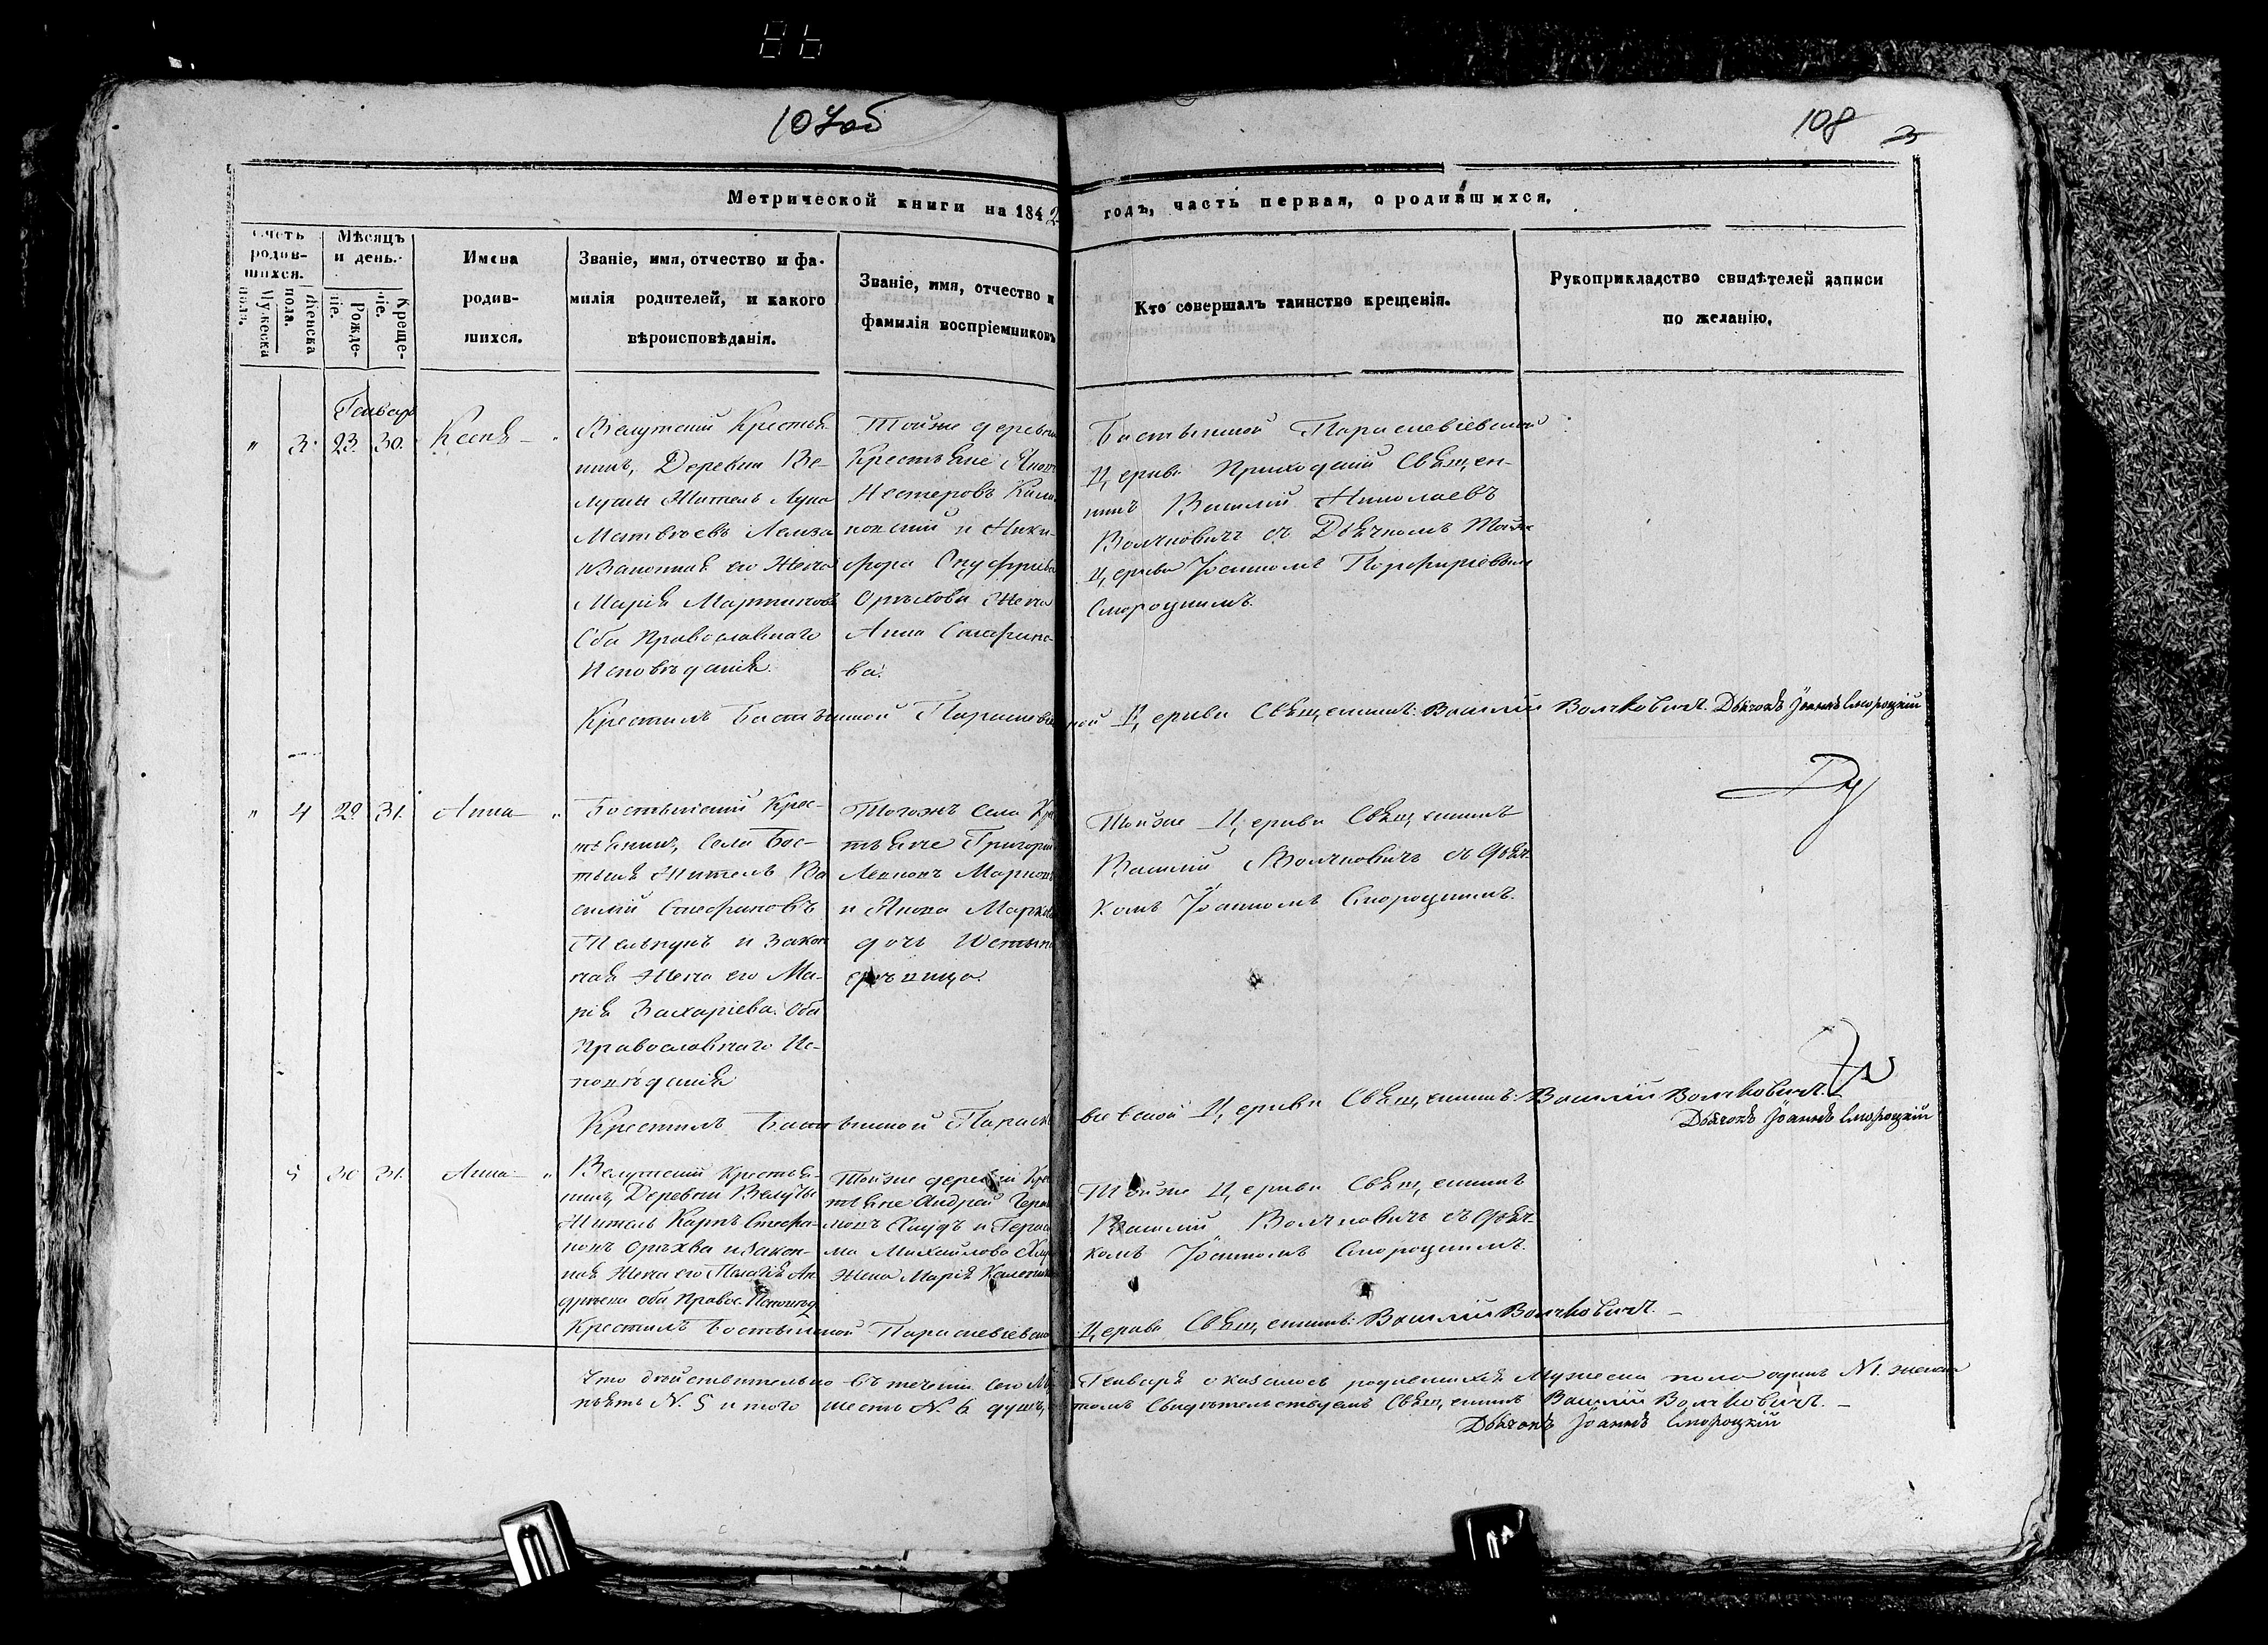 107об
108
3
Метрической книги на 1842 годъ, часть первая, о родившихся.
Счетъ родив-шихся.
Мужеска пола.
Женска пола.
Мѣсяцъ и день.
Рожде-ніе.
Креще-ніе.
Имена
родив-
шихся.
Званіе, имя, отчество и фа-
милія родителей, и какого
вѣроисповѣданія.
Званіе, имя, отчество и
фамилія воспріемниковъ
Кто совершалъ таинство крещенія.
Рукоприкладство свидѣтелей записи
по желанію.
Генварь
" 3. 23. 30. Ксенія "
Велутскій Крестья-
нинъ, Деревни Ве-
луты Житель Лука
Матвѣевъ
и Законная его Жена
Марія Мартинова
Оба Православнаго
Исповѣданія.
Тойже деревни
Крестьяне Яковъ
Нестеровъ
и Ники-
фора Онуфріева
Орѣхови Жена
Анна Стефано-
ва.
Бостынской Параскевіевской
Церкви Приходскій Священ-
никъ Василій Николаевъ
Волчковичъ съ Дьячкомъ Тойже
Церкви Іоанномъ Порфиріевымъ
Смороцкимъ.
Крестилъ Бостынской Параскевіевской Церкви Священникъ: Василій Волчковичъ. Дьячокъ Іоаннъ Смороцкій
" 4 29. 31. Анна "
Бостынскій Крес-
тьянинъ, Села Бос-
тыня Житель Ва
силій Стефановъ
Мельнукъ и Закон
ная Жена его Ма-
рія Захаріева. Оба
Православнаго Ис-
повѣданія
Тогожъ Села Кре
стьяне Григорій
Леоновъ
и Якова Марков
дочь
Тойже Церкви Священникъ
Василій Волчковичъ съ Дьяч-
комъ Іоанномъ Смороцкимъ.
Крестилъ Бостынской Параскевіевской Церкви Священникъ: Василій Волчковичъ.
Дьячокъ Іоаннъ Смороцкій
5 30 31. Анна "
Велутскій Крестья-
нинъ, Деревни Велуты
Житель Карпъ Стефа-
новъ Орѣхва и Закон-
ная Жена его Пелагія Ан-
дреева оба Правос. Исповѣд.
Тойже деревни Кре
стьяне Андрей
Хлудъ и Гераси
ма Михайлова
Жена Марія
Тойже Церкви Священникъ
Василій Волчковичъ съ Дьяч-
комъ Іоанномъ Смороцкимъ.
Крестилъ Бостынской Параскевіевской Церкви Священникъ: Василій Волчковичъ.
Что дѣйствительно въ теченіи сего Мѣ Генваря оказалось родившихся Мужеска пола одинъ N 1. женска
пять N. 5 итого шесть N. 6 душъ, томъ Свидѣтельствуемъ Священникъ Василій Волчковичъ.
Дьячокъ Іоаннъ Смороцкій